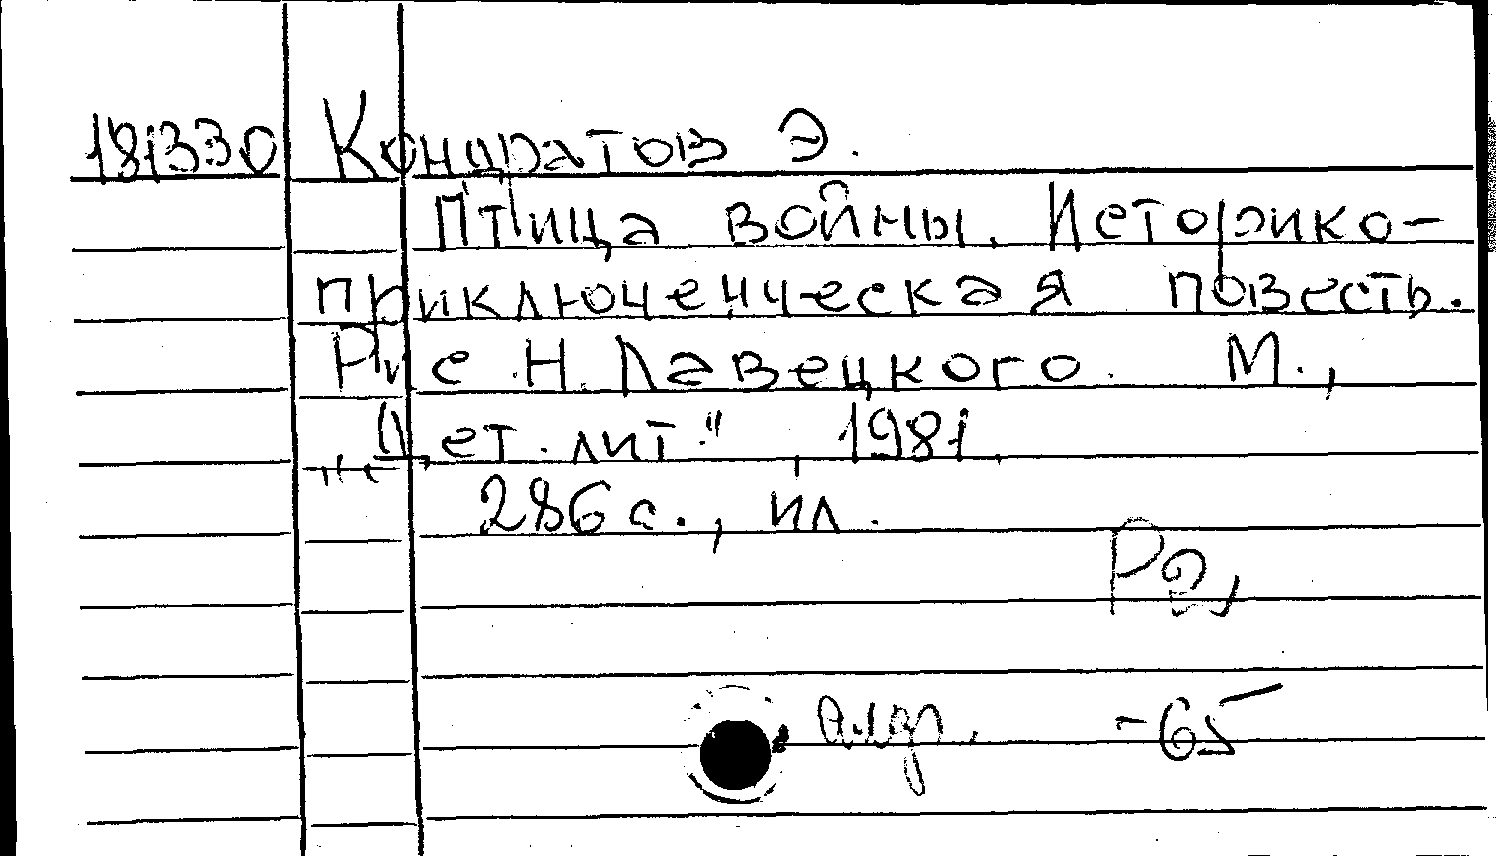 181330 Кондратов Э.
Птица войны. Историко-
приключенческая повесть.
Рис Н. Лавецкого. М.,
"Дет. лит.", 1981.
286 с., ил.
Р2
-65